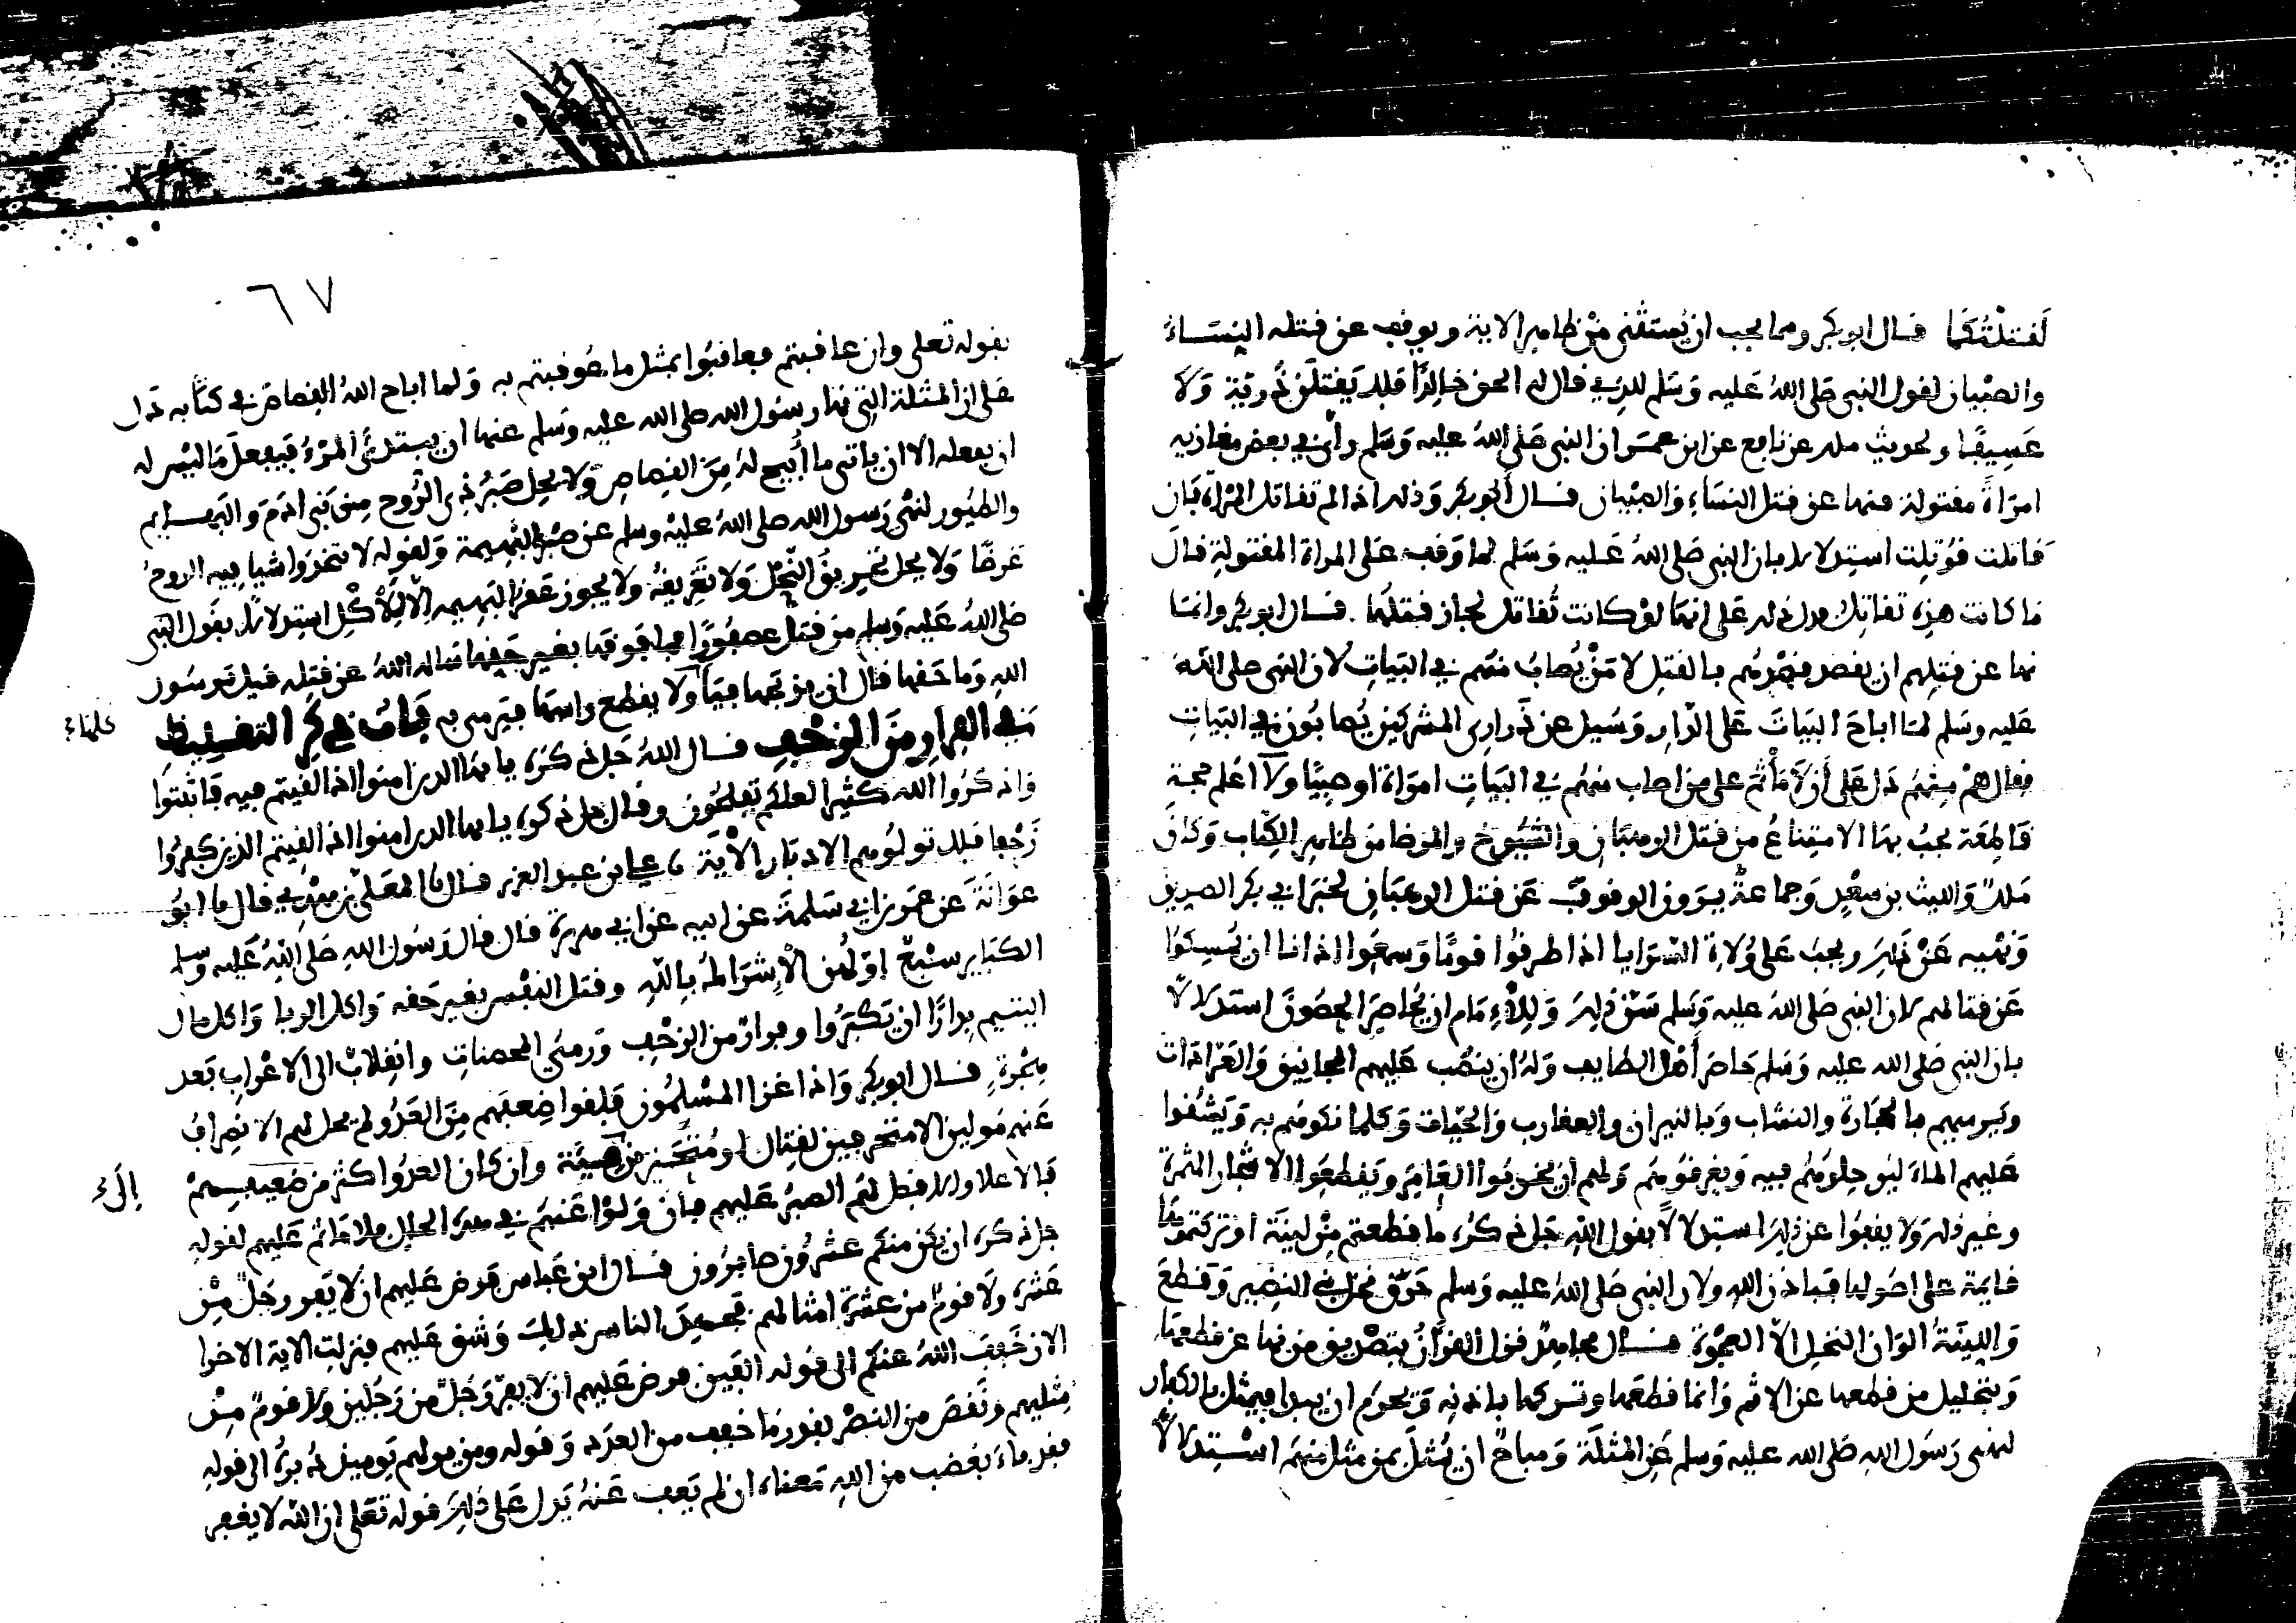 لقتلتكما قال ابو بكر ومما يجب ان يستثنى من ظاهر الاية ويوقف عن قتله النساء
والصبيان لقول النبي صلى الله عليه وسلم للذي قال له الحق خالدا فلا يقتلن ذرية ولا
عسيفا ولحديث ملك عن نافع عن ابن عمر ان النبي صلى الله عليه وسلم رأى في بعض مغازيه
امرأة مقتولة فنها عن قتل النساء والصبيان قال أبو بكر وذلك اذا لم تقاتل المرأة فان
قاتلت قوتلت استدلالا بان النبي صلى الله عليه وسلم لما وقف على المراة المقتولة قال
ما كانت هذه تقاتل دل ذلك على انها لو كانت تقاتل لجاز قتلها . قال ابو بكر وانما
نها عن قتلهم ان يقصد قصدهم بالقتل لا من يصاب منهم في البيات لان النبي صلى الله
عليه وسلم لما اباح البيات على الدار وسيل عن ذراري المشركين يصابون في البيات
فقال هم منهم دل على أن لا مأثم على من اصاب منهم في البيات امراة او صبيا ولا اعلم حجة
قاطعة يجب بها الامتناع من قتل الرهبان والشيوخ والمرضا من ظاهر الكتاب وكان
ملك والليث بن سعد وجماعة يرون الوقوف عن قتل الرهبان لخبر ابي بكر الصديق
ونهيه عن ذلك ويجب على ولاة السرايا اذا طرقوا قوما وسمعوا اذانا ان يمسكوا
عن قتالهم لان النبي صلى الله عليه وسلم سن ذلك وللإمام ان يحاصر الحصون استدلالا
بان النبي صلى الله عليه وسلم حاصر أهل الطايف وله ان ينصب عليهم المجانيق والعرادات
ويرميهم بالحجارة والنشاب وبالنيران والعقارب والحيات وكلما نكوهم به ويبثقوا
عليهم الماء ليوحلوهم فيه ويغرقوهم ولهم ان يخربوا العامر ويقطعوا الاشجار المثمرة
وغير ذلك ولا يقفوا عن ذلك استدلالا بقول الله جل ذكره ما قطعتم من لينة او تركتموها
قايمة على اصولها فباذن الله ولان النبي صلى الله عليه وسلم حرق نخل بني النضير وقطع
والينة الوان النخل الا العجوة قال مجاهد نزل القرآن بتصديق من نها عن قطعها
وبتحليل من قطعها عن الاثم وانما قطعها وتركها باذنه ويحرم ان يبدا فيمثل بالكفار
لنهي رسول الله صلى الله عليه وسلم عن المثلة ومباح ان يمثل بمن مثل منهم استدلالا
٦٧
بقوله تعلى وان عاقبتم فعاقبوا بمثل ما عوقبتم به ولما اباح الله القصاص في كتابه دل
على ان المثلة التي نها رسول الله صلى الله عليه وسلم عنها ان يبتدئ المرء فيفعل ما ليس له
ان يفعله الا ان ياتي ما أبيح له من القصاص ولا يحل صبر ذي الروح من بني ادم والبهايم
والطيور لنهي رسول الله صلى الله عليه وسلم عن صبر البهيمة ولقوله لا تتخذوا شيا فيه الروح
غرضا ولا يحل تحريق النحل ولا تغريقه ولا يجوز عقر البهيمه الا للأكل استدلالا بقول النبي
صلى الله عليه وسلم من قتل عصفورا فما فوقها بغير حقها ساله الله عن قتله قيل يرسول
الله وما حقها قال ان يذبحها فياكلها ولا يقطع راسها فيرمي به باب ذكر التغليظ
في الفرار من الزحف قال الله جل ذكره يا يها الذين امنوا اذا لقيتم فيه فاثبتوا
واذكروا الله كثيرا لعلكم تفلحون وقال جل ذكره يا يها الذين امنوا اذا لقيتم الذين كفروا
زحفا فلا تولوهم الادبار الاية نا علي بن عبد العزيز قال نا المعلى بن مهدي قال نا ابو
عوانة عن عمر بن ابي سلمة عن ابيه عن ابي هريرة قال قال رسول الله صلى الله عليه وسلم
الكباير سبع اولهن الإشراك بالله وقتل النفس بغير حقه واكل الربا واكل مال
اليتيم بدارا ان يكبروا وفرار من الزحف ورمي المحصنات وانقلاب الى الاعراب بعد
هجرة قال ابو بكر واذا غزا المسلمون فلقوا ضعفهم من العدو لم يحل لهم الانصراف
عنهم مولين الا متحرفين لقتال او متحيز من فئة وان كان العدو اكثر من ضعيفهم
فالاعلا والافضل لهم الصبر عليهم فان ولوا عنهم في هذه الحال فلا ماثم عليهم لقوله
جل ذكره ان يكن منكم عشرون صابرون قال ابن عباس فرض عليهم ان لا يفر رجل من
عشرة ولا قوم من عشرة امثالهم فجهد الناس ذلك وشق عليهم فنزلت الاية الاخرا
الان خفف الله عنكم الى قوله الفين فرض عليهم ان لا يفر رجل من رجلين ولا قوم من
مثليهم ونقص من النصر بقدر ما خفف من العدد وقوله ومن يولهم يوميذ دبره الى قوله
فقد باء بغضب من الله معناه ان لم يعف عنه يدل على ذلك قوله تعلى ان الله لا يغفر